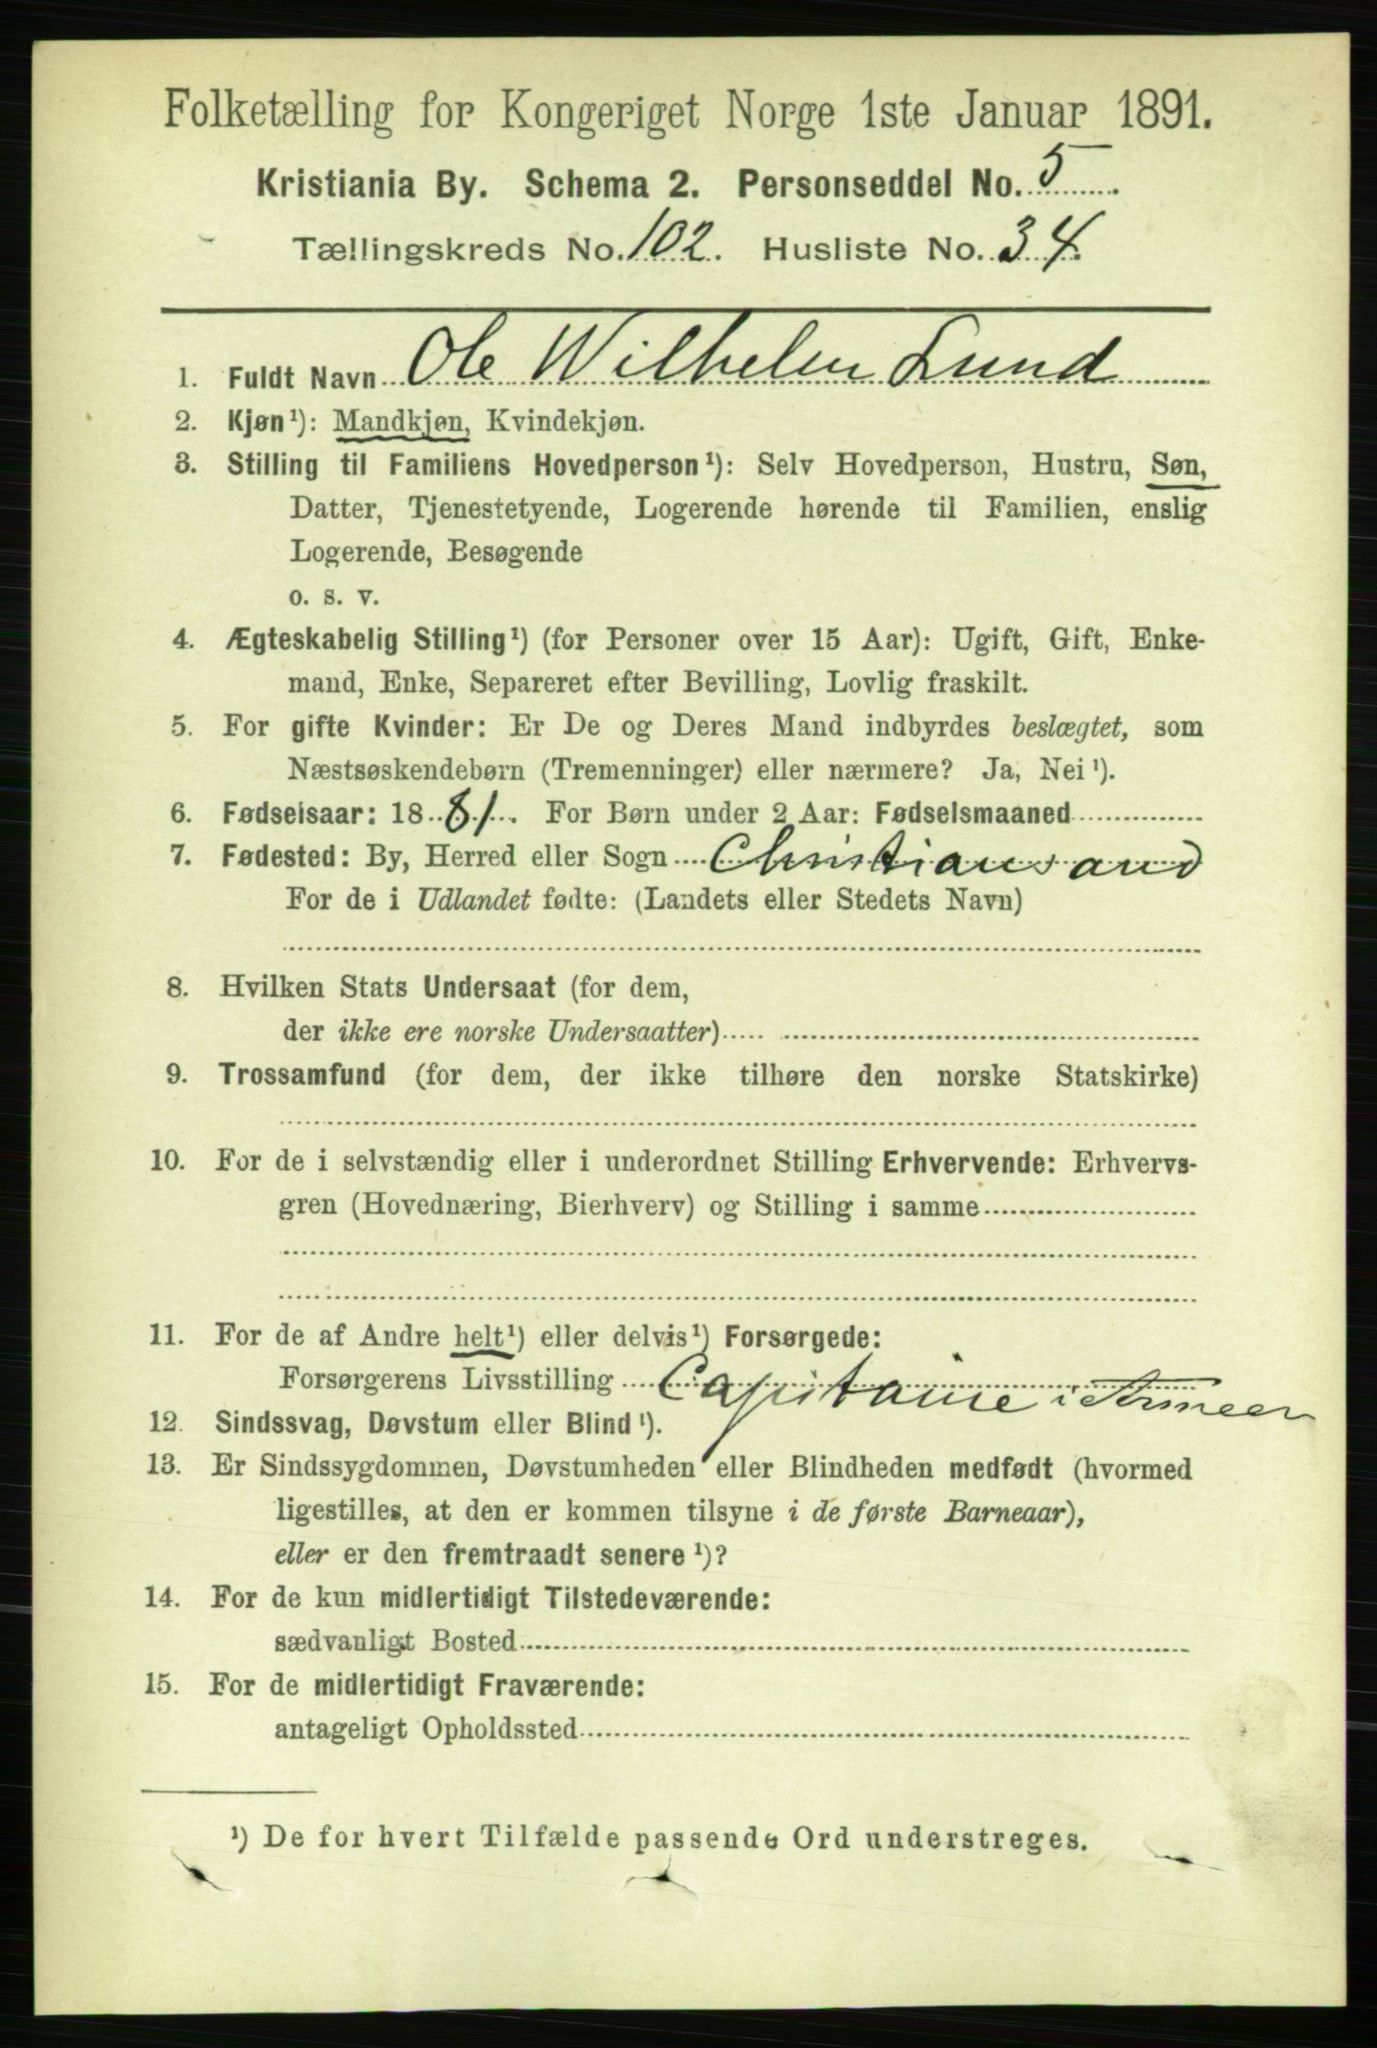 Folketælling for Kongeriget Norge 1ste Januar 1891.
Kristiania By. Schema 2. Personseddel No. 5
Tællingskreds No. 102. Husliste No. 34.
1. Fuldt Navn Ole Wilhelm Lund
2. Kjøn¹): Mandkjøn, Kvindekjøn.
3. Stilling til Familiens Hovedperson¹): Selv Hovedperson, Hustru, Søn,
Datter, Tjenestetyende, Logerende hørende til Familien, enslig
Logerende, Besøgende
o. s. v.
4. Ægteskabelig Stilling¹) (for Personer over 15 Aar): Ugift, Gift, Enke-
mand, Enke, Separeret efter Bevilling, Lovlig fraskilt.
5. For gifte Kvinder: Er De og Deres Mand indbyrdes beslægtet, som
Næstsøskendebørn (Tremenninger) eller nærmere? Ja, Nei¹).
6. Fødselsaar: 1881. For Børn under 2 Aar: Fødselsmaaned
7. Fødested: By, Herred eller Sogn Christiansand
For de i Udlandet fødte: (Landets eller Stedets Navn)
8. Hvilken Stats Undersaat (for dem,
der ikke ere norske Undersaatter)
9. Trossamfund (for dem, der ikke tilhøre den norske Statskirke)
10. For de i selvstændig eller i underordnet Stilling Erhvervende: Erhvervs-
gren (Hovednæring, Bierhverv) og Stilling i samme
11. For de af Andre helt¹) eller delvis¹) Forsørgede:
Forsørgerens Livsstilling Capitaine i Armeen
12. Sindssvag, Døvstum eller Blind¹).
13. Er Sindssygdommen, Døvstumheden eller Blindheden medfødt (hvormed
ligestilles, at den er kommen tilsyne i de første Barneaar),
eller er den fremtraadt senere¹)?
14. For de kun midlertidigt Tilstedeværende:
sædvanligt Bosted
15. For de midlertidigt Fraværende:
antageligt Opholdssted
¹) De for hvert Tilfælde passende Ord understreges.